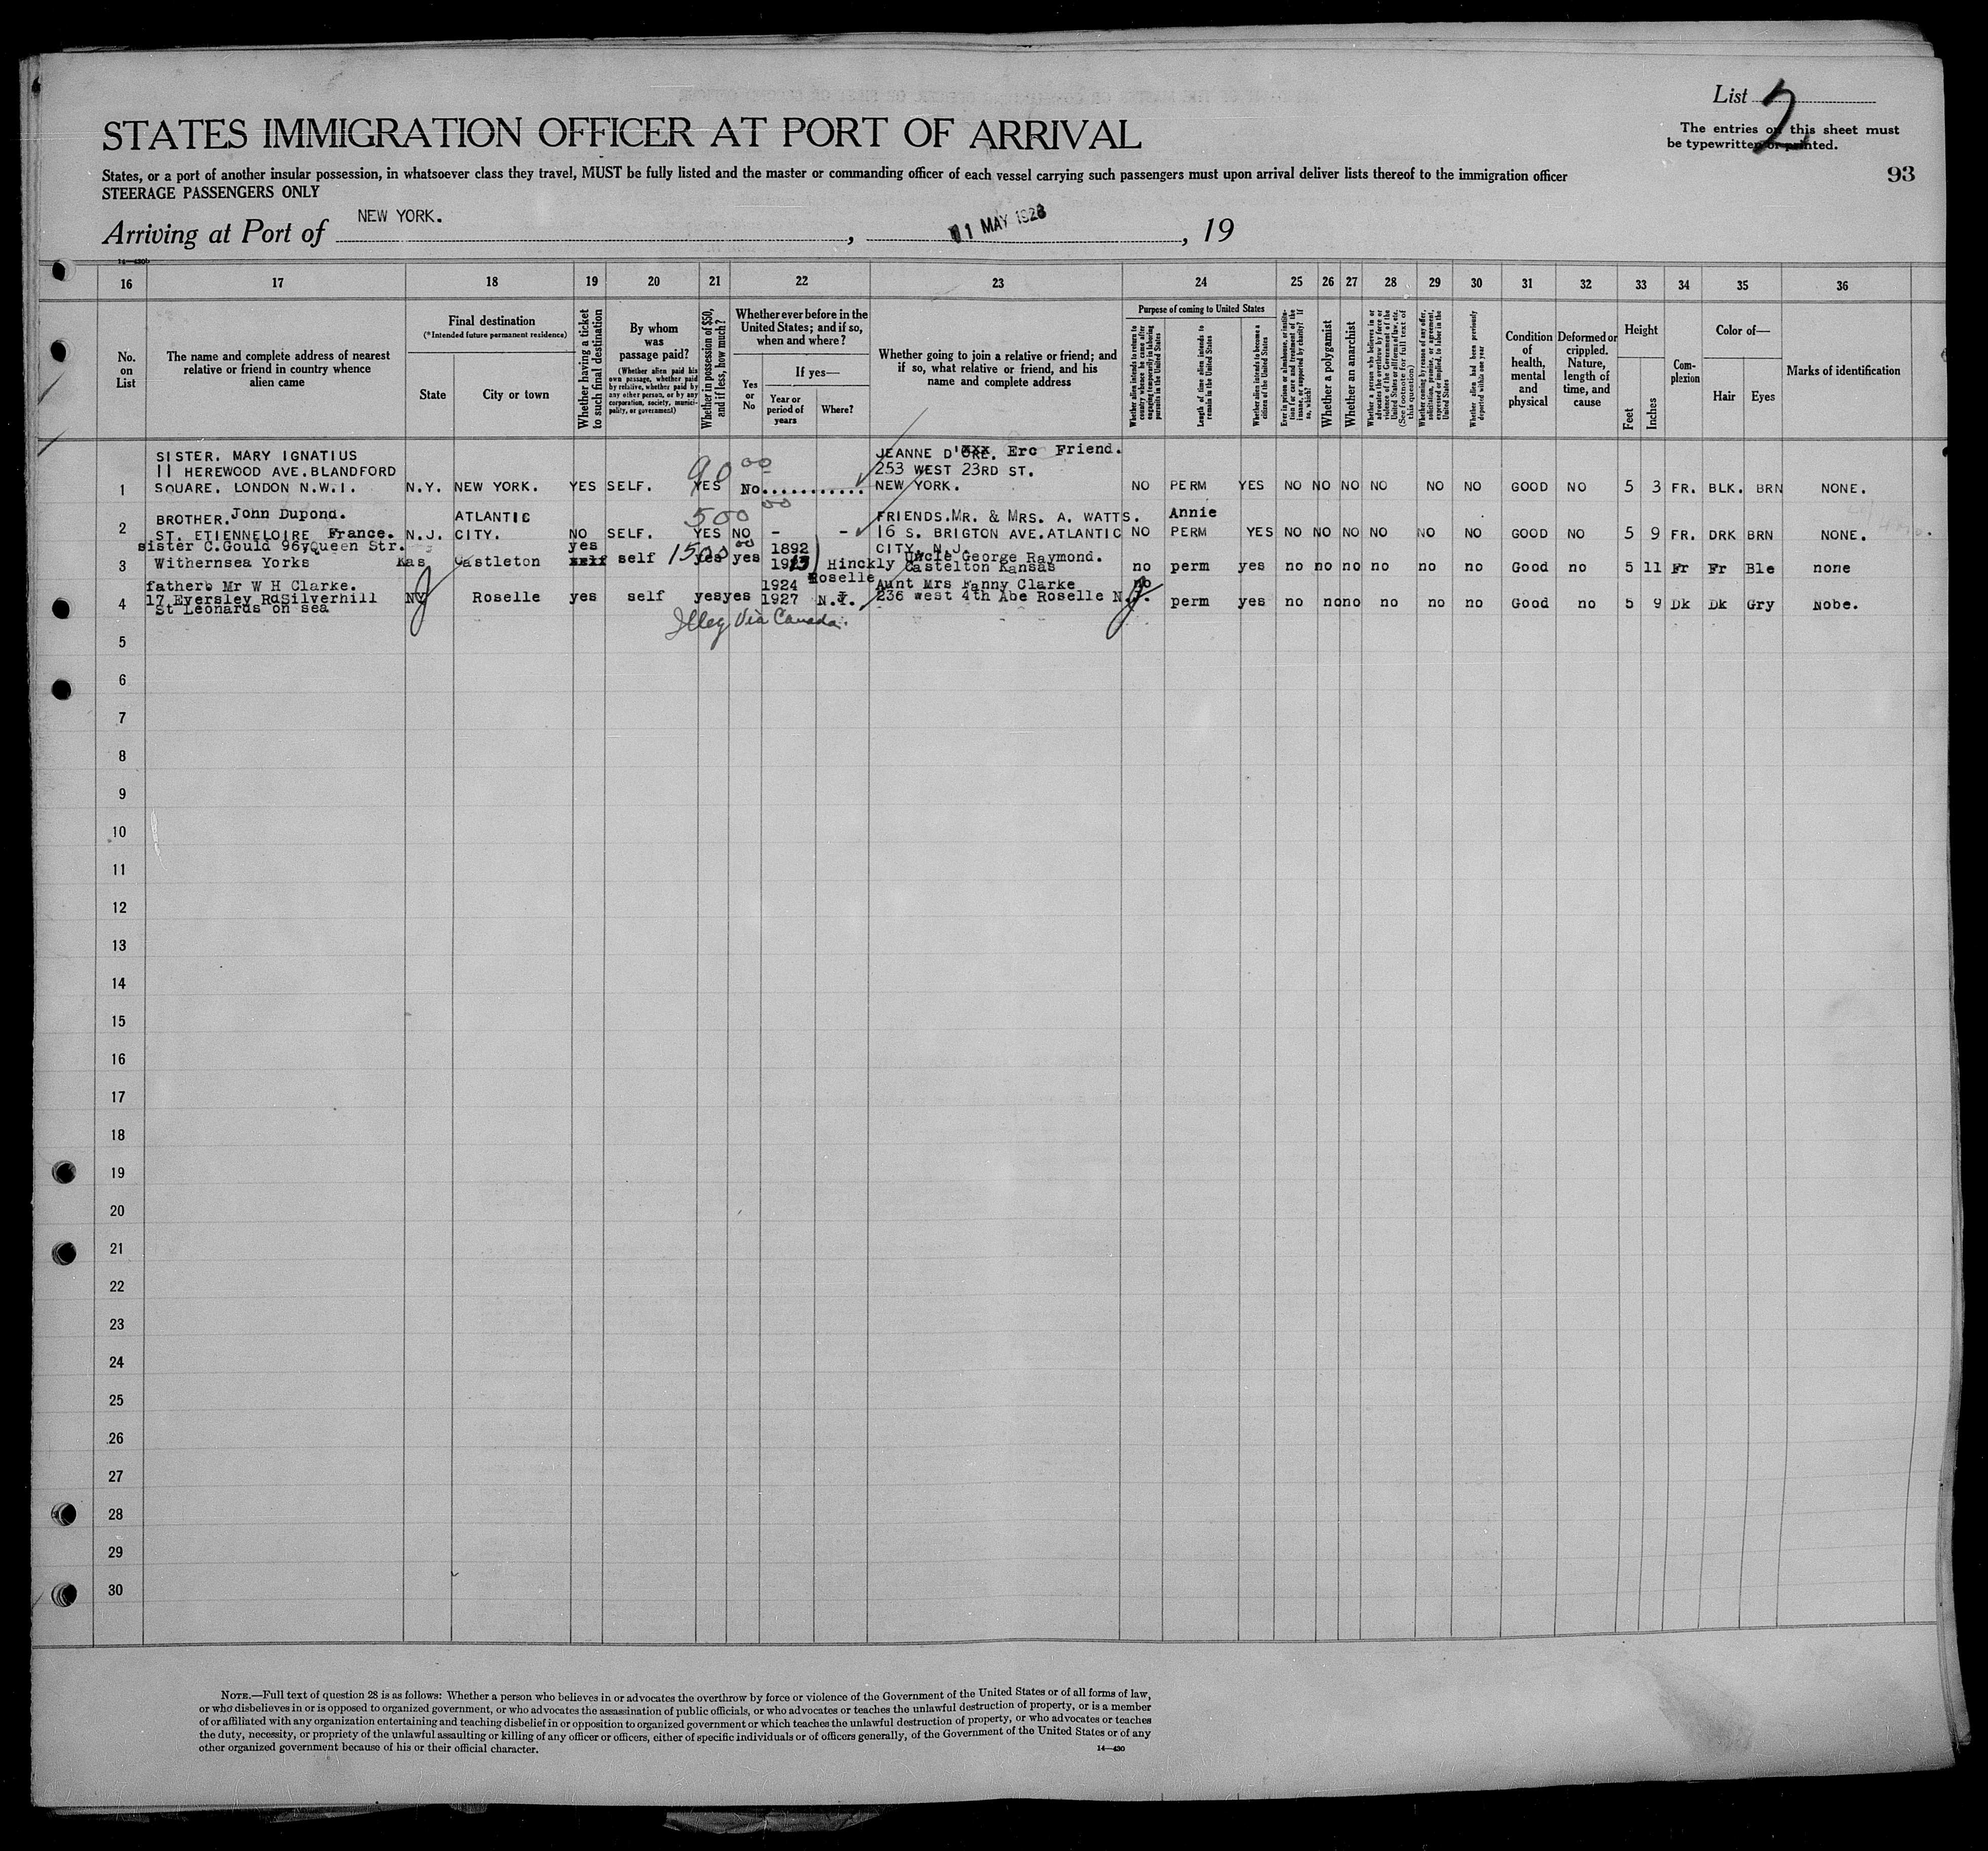 List 2
The entries on this sheet must
be typewritten or printed.
STATES IMMIGRATION OFFICER AT PORT OF ARRIVAL
States, or a port of another insular possession, in whatsoever class they travel, MUST be fully listed and the master or commanding officer of each vessel carrying such passengers must upon arrival deliver lists thereof to the immigration officer
STEERAGE PASSENGERS ONLY
93
Arriving at Port of NEW YORK. , 01 MAY 1928 , 19
16 17 18 19 20 21 22 23 24 25 26 27 28 29 30 31 32 33 34 35 36
No. on List
The name and complete address of nearest relative or friend in country whence alien came
Final destination
(*Intended future permanent residence)
State
City or town
Whether having a ticket to such final destination
By whom was passage paid?
(Whether alien paid his own passage, whether paid by relative, whether paid by any other person, or by any corporation, society, municipality, or government)
Whether in possession of $50, and if less, how much?
Whether ever before in the United States; and if so, when and where?
Yes or No
If yes—
Year or period of years
Where?
Whether going to join a relative or friend; and if so, what relative or friend, and his name and complete address
Purpose of coming to United States
Whether alien intends to return to country whence he came after engaging temporarily in laboring pursuits in the United States
Length of time alien intends to remain in the United States
Whether alien intends to become a citizen of the United States
Ever in prison or almshouse, or institution for care and treatment of the insane, or supported by charity? If so, which?
Whether a polygamist
Whether an anarchist
Whether a person who believes in or advocates the overthrow by force or violence of the Government of the United States or all forms of law, etc. (See footnote for full text of this question)
Whether coming by reason of any offer, solicitation, promise, or agreement, expressed or implied, to labor in the United States
Whether alien had been previously deported within one year
Condition of health, mental and physical
Deformed or crippled. Nature, length of time, and cause
Height
Feet
Inches
Complexion
Color of—
Hair
Eyes
Marks of identification
SISTER. MARY IGNATIUS JEANNE D' Erc Friend.
11 HEREWOOD AVE.BLANDFORD 90 00 253 WEST 23RD ST.
1 SQUARE. LONDON N.W.1. N.Y. NEW YORK. YES SELF. YES No............ NEW YORK. NO PERM YES NO NO NO NO NO NO GOOD NO 5 3 FR. BLK. BRN NONE.
BROTHER. John Dupond. ATLANTIC 500 00 FRIENDS.MR. & MRS. A. WATTS. Annie
2 ST. ETIENNELOIRE France. N.J. CITY. NO SELF. YES NO - - 16 S. BRIGTON AVE.ATLANTIC NO PERM YES NO NO NO NO NO NO GOOD NO 5 9 FR. DRK BRN NONE.
CITY. N.J.
sister C.Gould 96yQueen Str. yes 1500 00 1892 Uncle George Raymond.
3 Withernsea Yorks Kas Castleton self self yes yes 1923 Hinckly Castelton Kansas no perm yes no no no no no no Good no 5 11 Fr Fr Ble none
fatherb Mr W H Clarke. 1924 Roselle Aunt Mrs Fanny Clarke no
4 17 Eversley RdSilverhill NJ Roselle yes self yes yes 1927 N.J. 236 west 4th Abe Roselle N.J. perm yes no no no no no no Good no 5 9 Dk Dk Gry Nobe.
St Leonards on sea
Illeg Via Canada.
5
6
7
8
9
10
11
12
13
14
15
16
17
18
19
20
21
22
23
24
25
26
27
28
29
30
NOTE.—Full text of question 28 is as follows: Whether a person who believes in or advocates the overthrow by force or violence of the Government of the United States or of all forms of law,
or who disbelieves in or is opposed to organized government, or who advocates the assassination of public officials, or who advocates or teaches the unlawful destruction of property, or is a member
of or affiliated with any organization entertaining and teaching disbelief in or opposition to organized government or which teaches the unlawful destruction of property, or who advocates or teaches
the duty, necessity, or propriety of the unlawful assaulting or killing of any officer or officers, either of specific individuals or of officers generally, of the Government of the United States or of any
other organized government because of his or their official character.
14—430